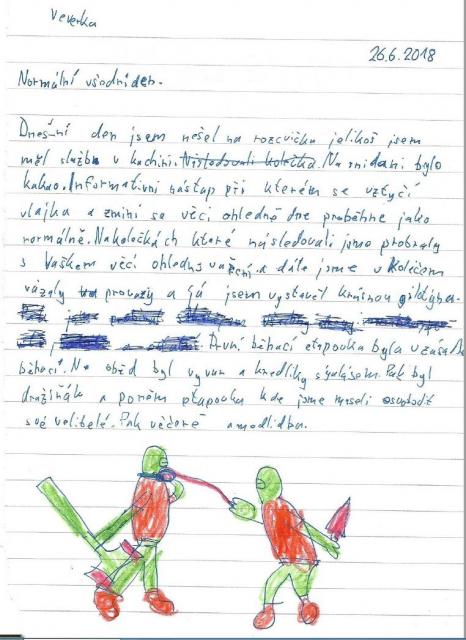 Veverka
26.6.2018
Normální všední den.
Dnešní den jsem nešel na rozcvičku jelikož jsem
měl službu v kuchini. Následovali kolečka. Na snídani bylo
kakao. Informativní nástup při kterém se vztyčí
vlajka a zmíní se věci ohledně dne proběhne jako
normálně. Na kolečkách které následovali jsme probraly
s Vaškem věcí ohledně vaření a dále jsme v kolečem
vázaly provazy a já jsem vystavěl
První běhací etapovka byla
běhací". Na oběd byl vývar a knedlíky s gulášem. Pak byl
družiňák a potom etapovka kde jsme museli osvobodit
své velitelé. Pak večeře a modlidba.